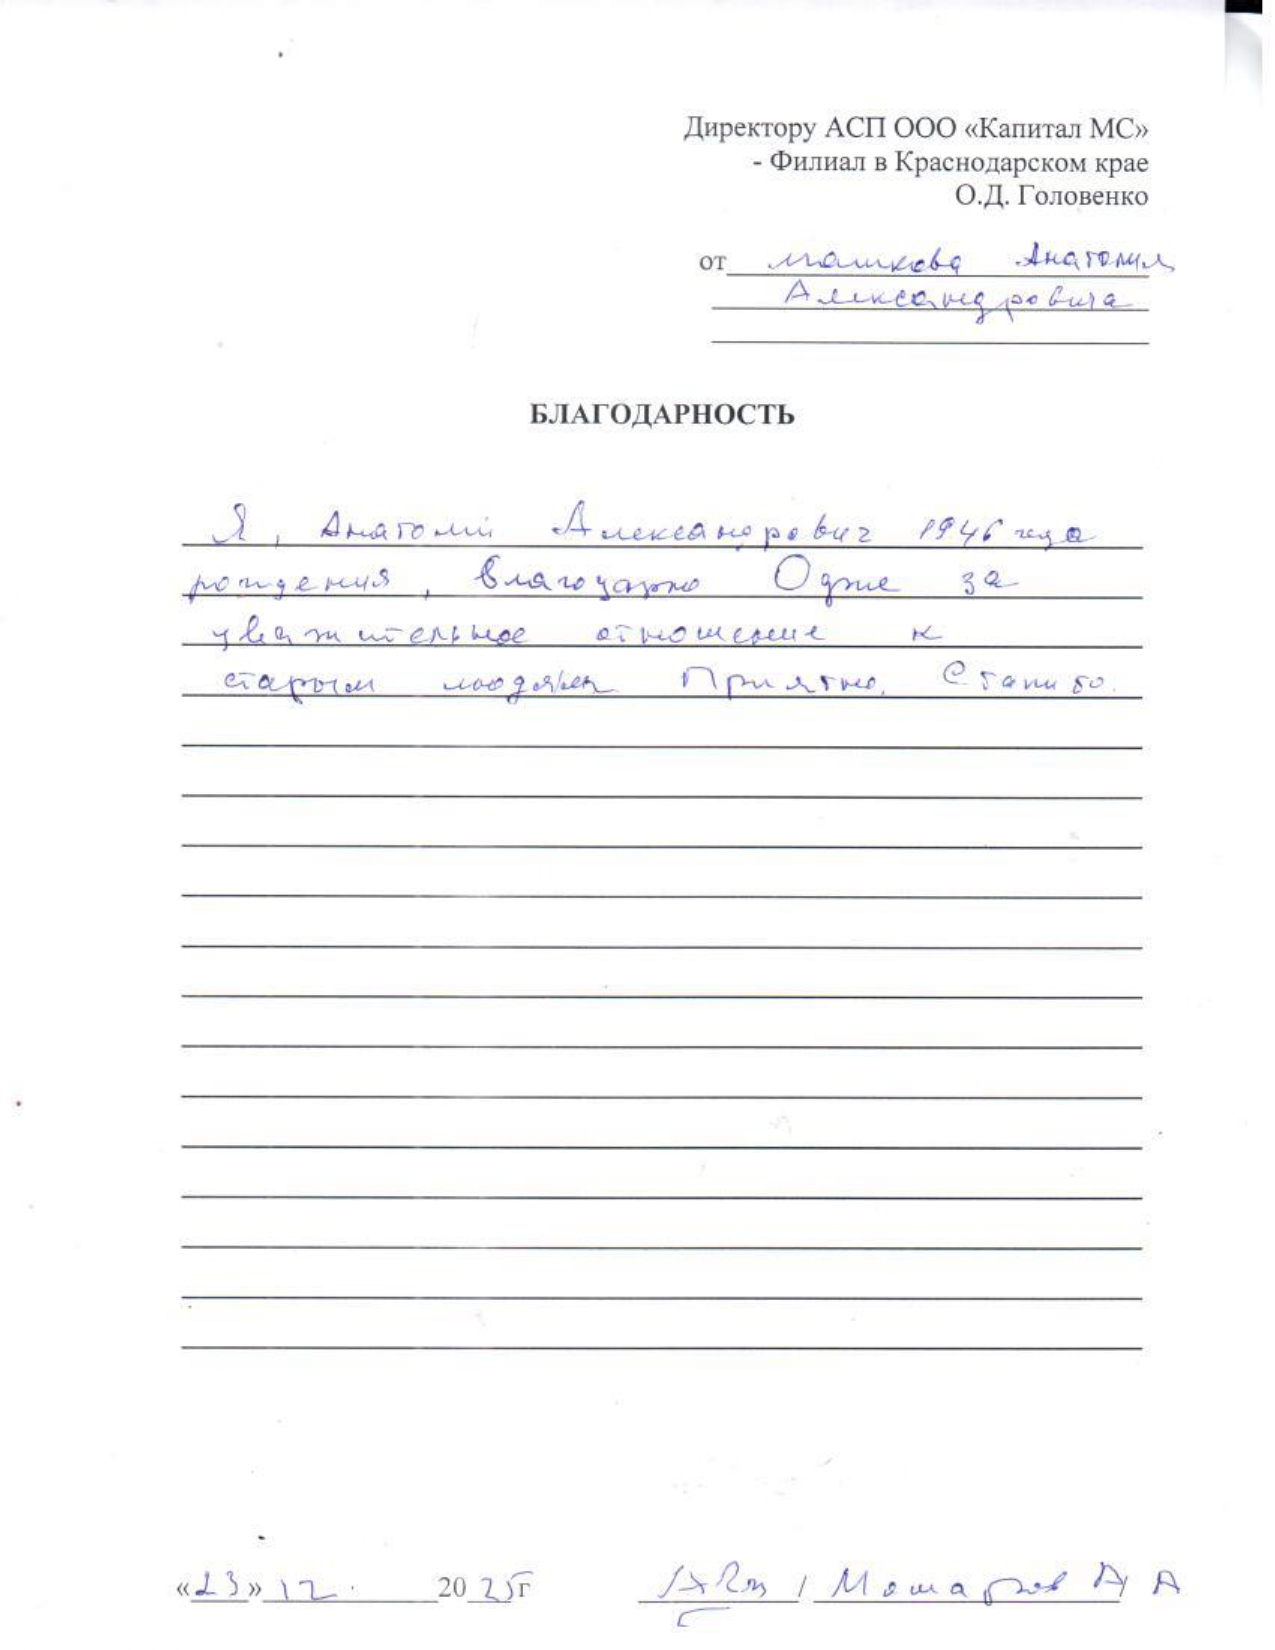 Директору АСП ООО «Капитал МС»
- Филиал в Краснодарском крае
О.Д. Головенко
от Машкова Анатолия
Александровича
БЛАГОДАРНОСТЬ
Я, Анатолий Александрович 1946 года
рождения, благодарю за
уважительное отношение к
старым людям Приятно.
«23» 12. 2025г
/ А А